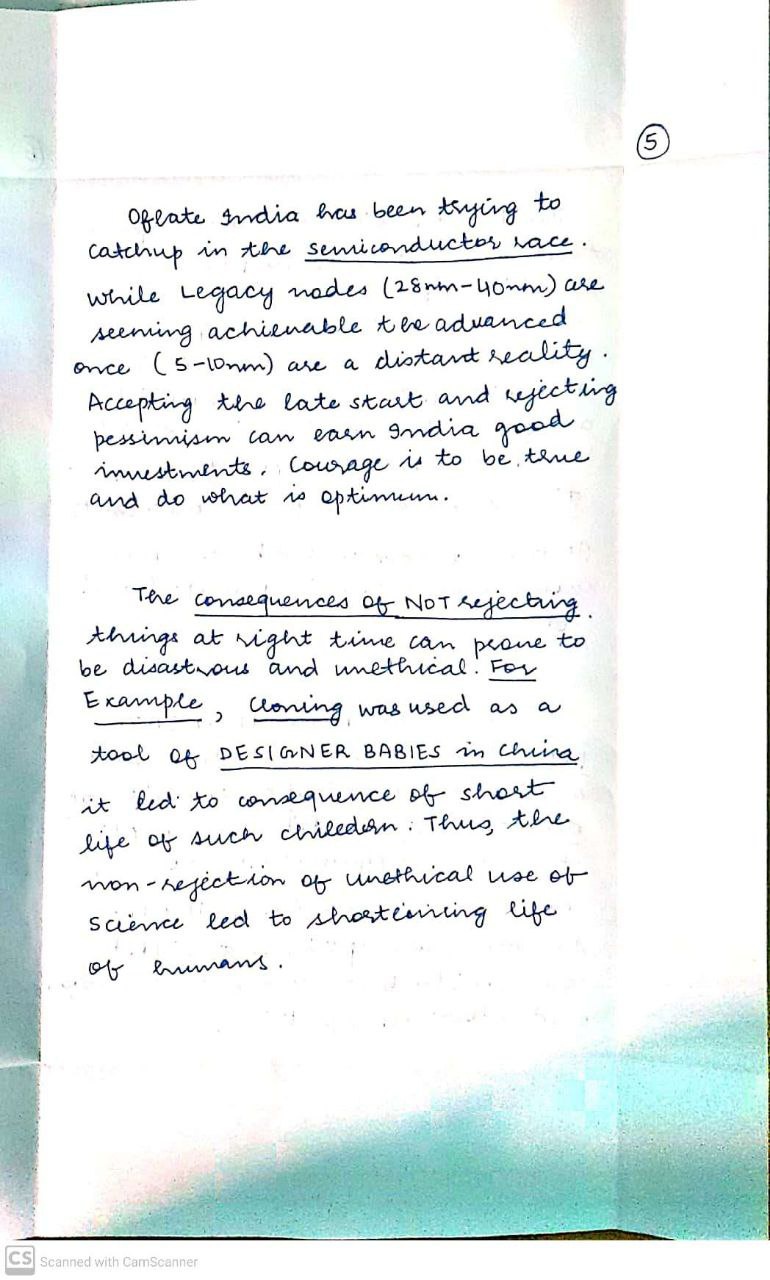 5
Oflate India has been trying to
catchup in the semiconductor race.
While Legacy nodes (28nm-40nm) are
seeming achievable the advanced
once (5-10nm) are a distant reality.
Accepting the late start and rejecting
pessimism can earn India good
investments. Courage is to be true
and do what is optimum.
The consequences of NOT rejecting
things at right time can prove to
be disastrous and unethical. For
Example, Cloning was used as a
tool of DESIGNER BABIES in China
it led to consequence of short
life of such chiledern. Thus, the
non-rejection of unethical use of
science led to shorteining life
of humans.
CS Scanned with CamScanner